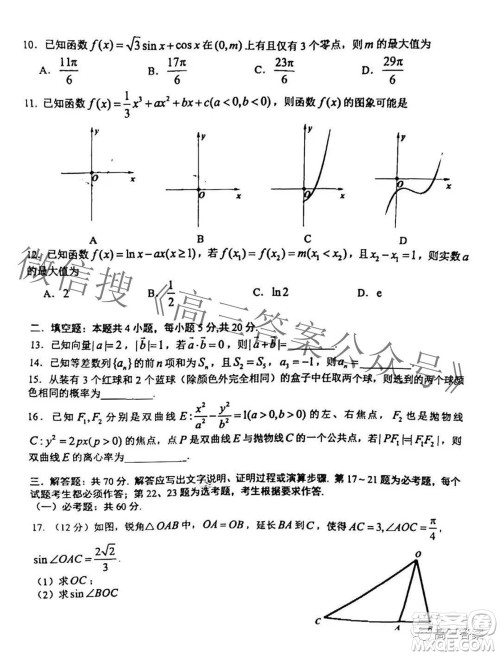 10. 已知函数 f(x)=√3 sin x+cos x 在(0,m)上有且仅有 3 个零点，则 m 的最大值为
A. 11π/6 B. 17π/6 C. 23π/6 D. 29π/6
11. 已知函数 f(x)=1/3 x³+ax²+bx+c(a<0,b<0)，则函数 f(x) 的图象可能是
y y y y
O x O x O x O x
A B C D
12. 已知函数 f(x)=ln x-ax(x≥1)，若 f(x₁)=f(x₂)=m(x₁<x₂)，且 x₂-x₁=1，则实数 a
的最大值为
A. 2 B. 1/2 C. ln2 D. e
二、填空题：本题共 4 小题，每小题 5 分,共 20 分.
13. 已知向量|a|=2，|b|=1，若 a·b=0，则|a+b|=
14. 已知等差数列{aₙ}的前 n 项和为 Sₙ，且 S₂=S₅，a₃=-1，则 a₅=
15. 从装有 3 个红球和 2 个蓝球（除颜色外完全相同）的盒子中任取两个球，则选到的两个球颜
色相同的概率为
16. 已知 F₁,F₂ 分别是双曲线 E: x²/a²-y²/b²=1(a>0,b>0) 的左、右焦点，F₂ 也是抛物线
C: y²=2px(p>0) 的焦点，点 P 是双曲线 E 与抛物线 C 的一个公共点，若|PF₁|=|F₁F₂|，则
双曲线 E 的离心率为
三、解答题：共 70 分. 解答应写出文字说明、证明过程或演算步骤. 第 17～21 题为必考题，每个
试题考生都必须作答；第 22、23 题为选考题，考生根据要求作答.
（一）必考题：共 60 分.
17.（12 分）如图，锐角△OAB 中，OA=OB，延长 BA 到 C，使得 AC=3,∠AOC=π/4,
sin∠OAC=2√2/3.
（1）求 OC；
（2）求 sin∠BOC
O
C A
微信搜《高三答案公众号》
高三答案